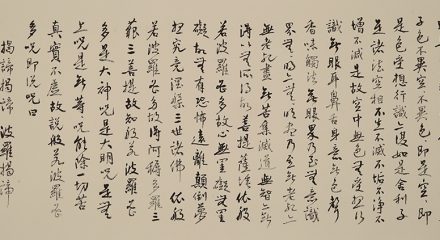 子色不異空不異色即是空即
是色受想行識亦復如是舍利子
是諸法空相不生不滅不垢不淨不
增不減是故空中無色無受想行
識無眼耳鼻舌身意無色聲
香味觸法無眼界乃至無意識
界無無明亦無無明盡乃至無老死亦
無老死盡無苦集滅道無智亦無
得以無所得故菩提薩埵依般
若波羅蜜多故心無罣礙無罣
礙故無有恐怖遠離顛倒夢
想究竟涅槃三世諸佛依般
若波羅蜜多故得阿耨多羅三
藐三菩提故知般若波羅蜜
多是大神呪是大明呪是無
上呪是無等等呪能除一切苦
真實不虛故說般若波羅蜜
多呪即說呪曰
揭諦揭諦 波羅揭諦